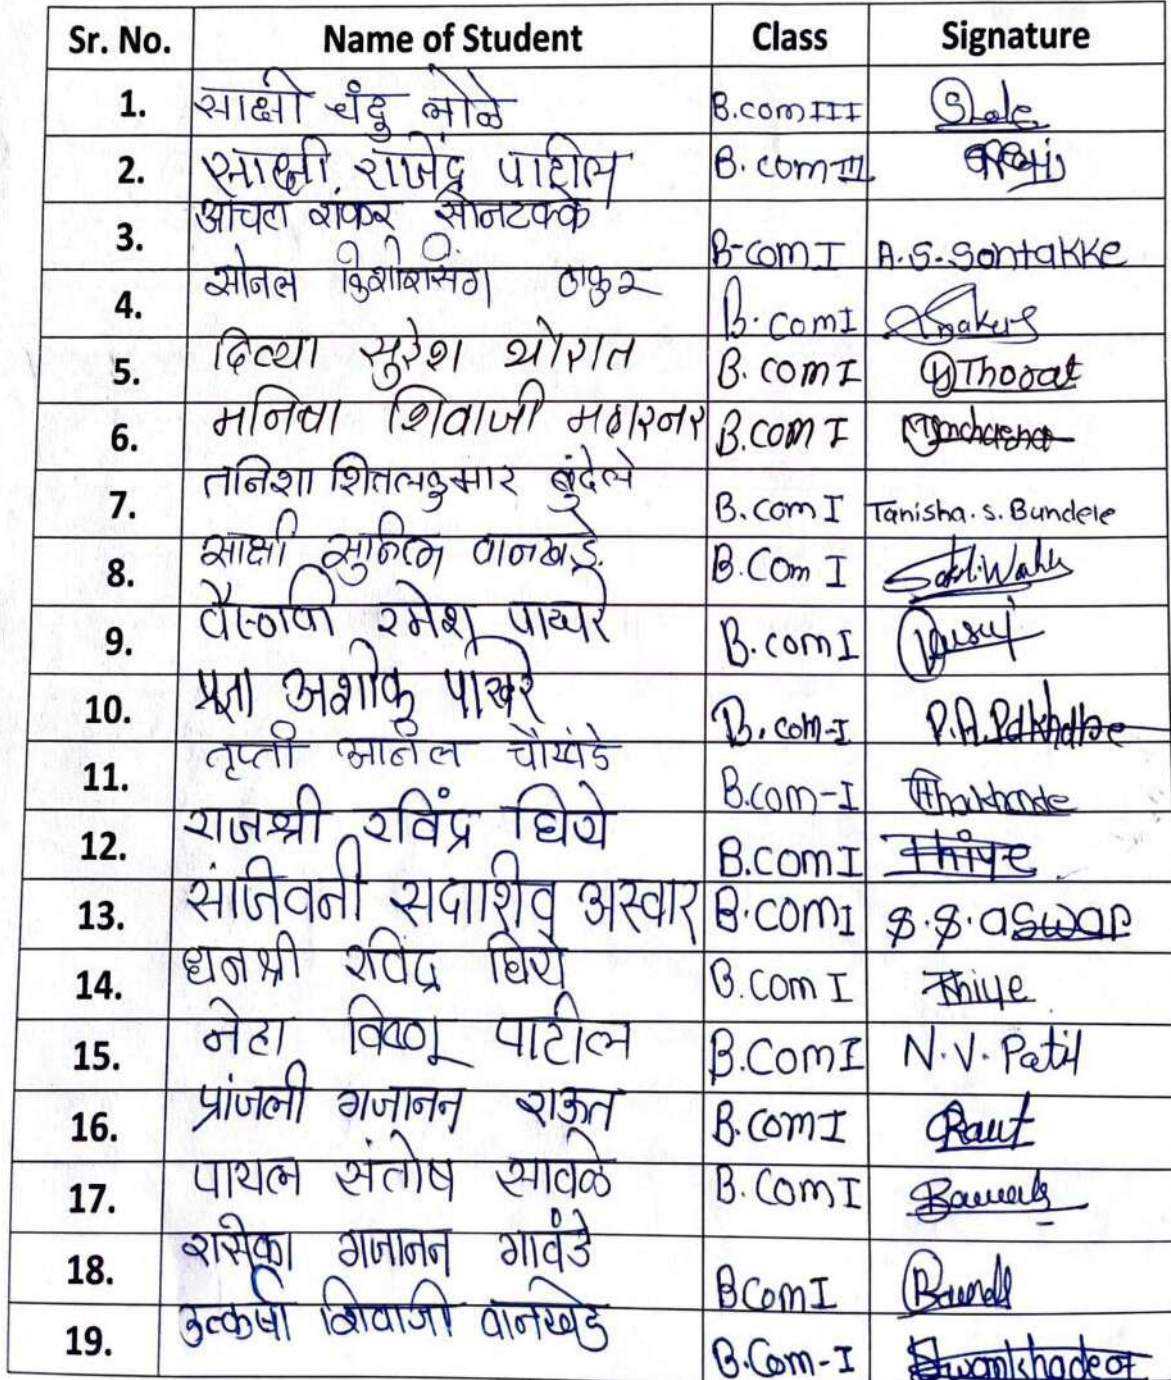 Sr. No. Name of Student Class Signature
1. साक्षी चंदु भोळे B.com III
2. साक्षी राजेंद्र पाटील B. com III
3. आंचल शंकर सोनटक्के B-com I A.S.Sontakke
4. सोनल किशोरसिंग ठाकुर B.com I Thakur
5. दिव्या सुरेश थोरात B. com I Thorat
6. मनिषा शिवाजी महारनर B.com I
7. तनिशा शितलकुमार बुंदेले B.com I Tanisha.s.Bundele
8. साक्षी सुनिल वानखडे B.Com I
9. वैष्णवी रमेश पाखरे B.com I
10. प्रज्ञा अशोक पाखरे B.com-I P.A.Pakhare
11. तृप्ती अनिल चोखंडे B.com-I
12. राजश्री रविंद्र घिये B.com I Thiye
13. संजिवनी सदाशिव अस्वार B.com I S.S.aswar
14. धनश्री रविंद्र घिये B.com I Thiye
15. नेहा विष्णू पाटील B.Com I N.V.Patil
16. प्रांजली गजानन राऊत B.com I Raut
17. पायल संतोष सावळे B.Com I
18. रसिका गजानन गावंडे BCom I
19. उत्कर्षा शिवाजी वानखेडे B.Com-I